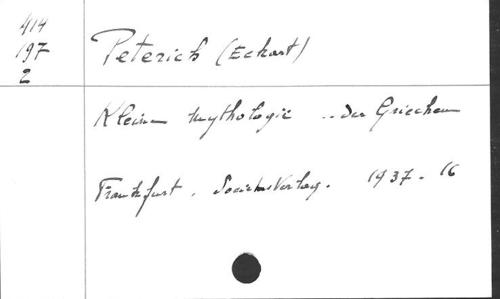 414
197
2
Peterich (Eckart)
Kleine Mythologie .. der Griechen
Frankfurt . Societäts Verlag . 1937 - 16